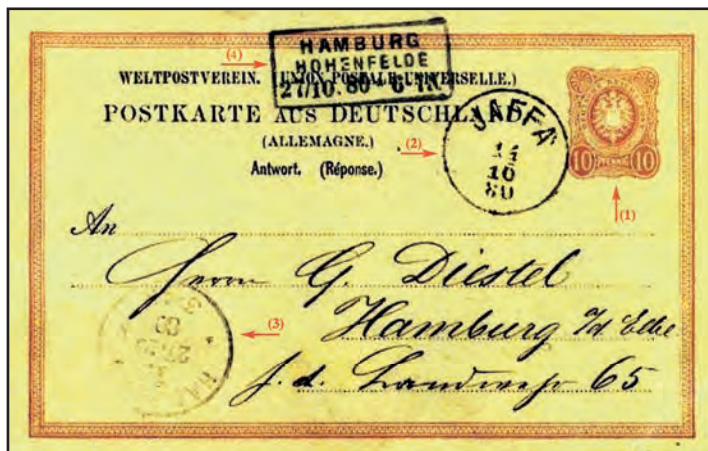 (4)
HAMBURG
HOHENFELDE
27/10.80
WELTPOSTVEREIN. (UNION POSTALE UNIVERSELLE.)
POSTKARTE AUS DEUTSCHLAND
(ALLEMAGNE.)
Antwort. (Réponse.)
(2)
JAFFA
10
80
10 PFENNIG 10
(1)
An
Herrn G. Diestel
Hamburg
65
(3)
HA